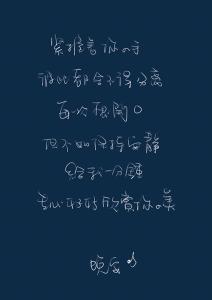 紧握着你的手
彼此都舍不得分离
每次想开口
但不如保持安静
给我一分钟
专心好好欣赏你的美
晚安